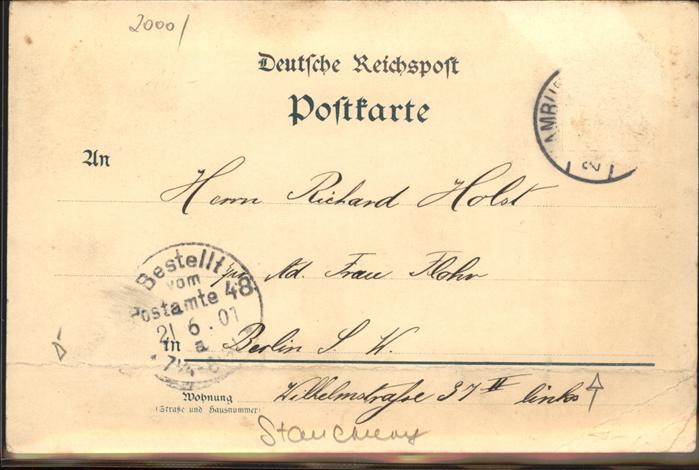 2000/
Deutsche Reichspost
Postkarte
An
Herrn Richard Holst
Ad. Frau Flohr
Bestellt
vom
Postamte 48
21 6. 01
a
in Berlin S. W.
Wohnung
(Straße und Hausnummer)
Wilhelmstraße 37 II links